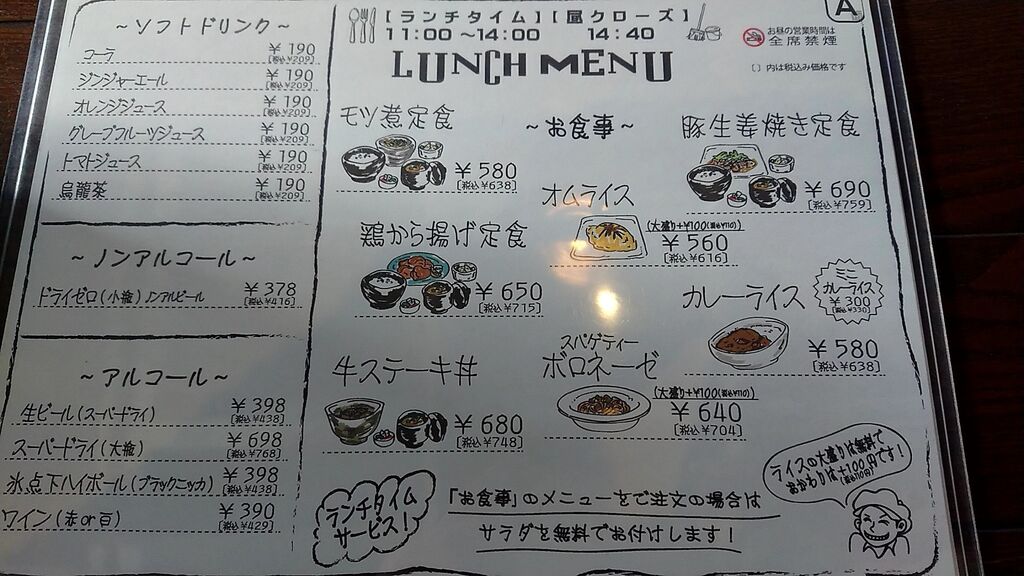 ～ソフトドリンク～
コーラ ￥190
[税込￥209]
ジンジャーエール ￥190
[税込￥209]
オレンジジュース ￥190
[税込￥209]
グレープフルーツジュース ￥190
[税込￥209]
トマトジュース ￥190
[税込￥209]
烏龍茶 ￥190
[税込￥209]
～ノンアルコール～
ドライゼロ(小瓶)ノンアルビール ￥378
[税込￥416]
～アルコール～
生ビール(スーパードライ) ￥398
[税込￥438]
スーパードライ(大瓶) ￥698
[税込￥768]
氷点下ハイボール(ブラックニッカ) ￥398
[税込￥438]
ワイン(赤or白) ￥390
[税込￥429]
【ランチタイム】【昼クローズ】
11:00～14:00 14:40
LUNCH MENU
A
お昼の営業時間は
全席禁煙
〔〕内は税込み価格です
～お食事～
モツ煮定食
￥580
[税込￥638]
豚生姜焼き定食
￥690
[税込￥759]
オムライス
(大盛り+￥100(税込￥110))
￥560
[税込￥616]
鶏から揚げ定食
￥650
[税込￥715]
カレーライス
￥580
[税込￥638]
ミニ
カレーライス
￥300
[税込￥330]
牛ステーキ丼
￥680
[税込￥748]
スパゲティー
ボロネーゼ
(大盛り+￥100(税込￥110))
￥640
[税込￥704]
ランチタイム
サービス!
「お食事」のメニューをご注文の場合は
サラダを無料でお付けします!
ライスの大盛りは無料で
おかわりは+100円です!
(税込110円)